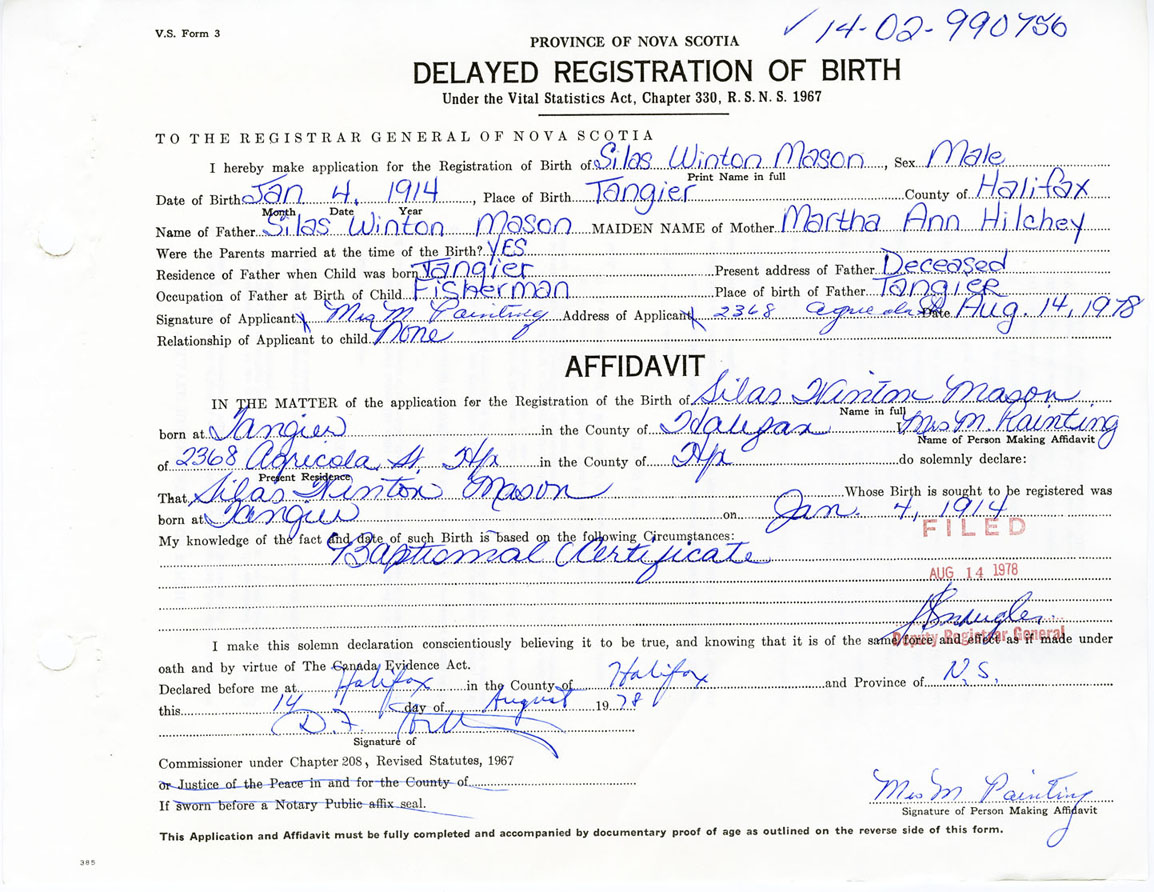 V.S. Form 3
✓ 14-02-990756
PROVINCE OF NOVA SCOTIA
DELAYED REGISTRATION OF BIRTH
Under the Vital Statistics Act, Chapter 330, R.S.N.S. 1967
TO THE REGISTRAR GENERAL OF NOVA SCOTIA
I hereby make application for the Registration of Birth of Silas Winton Mason, Sex Male
Print Name in full
Date of Birth Jan 4, 1914, Place of Birth Tangier County of Halifax
Month Date Year
Name of Father Silas Winton Mason MAIDEN NAME of Mother Martha Ann Hilchey
Were the Parents married at the time of the Birth? YES
Residence of Father when Child was born Tangier Present address of Father Deceased
Occupation of Father at Birth of Child Fisherman Place of birth of Father TANGIER
Signature of Applicant x Mrs M Painting Address of Applicant x 2368 Agricola St Date Aug. 14, 1978
Relationship of Applicant to child None
AFFIDAVIT
IN THE MATTER of the application for the Registration of the Birth of Silas Winton Mason
Name in full
born at Tangier in the County of Halifax I, Mrs M. Painting
Name of Person Making Affidavit
of 2368 Agricola St. Hfx in the County of Hfx do solemnly declare:
Present Residence
That Silas Winton Mason Whose Birth is sought to be registered was
born at Tangier on Jan. 4, 1914
FILED
My knowledge of the fact and date of such Birth is based on the following Circumstances:
Baptismal Certificate
AUG 14 1978
Deputy Registrar General
I make this solemn declaration conscientiously believing it to be true, and knowing that it is of the same force and effect as if made under
oath and by virtue of The Canada Evidence Act.
Declared before me at Halifax in the County of Halifax and Province of N.S.
this 14 day of August 1978
Signature of
Commissioner under Chapter 208, Revised Statutes, 1967
or Justice of the Peace in and for the County of
If sworn before a Notary Public affix seal.
Mrs M Painting
Signature of Person Making Affidavit
This Application and Affidavit must be fully completed and accompanied by documentary proof of age as outlined on the reverse side of this form.
385